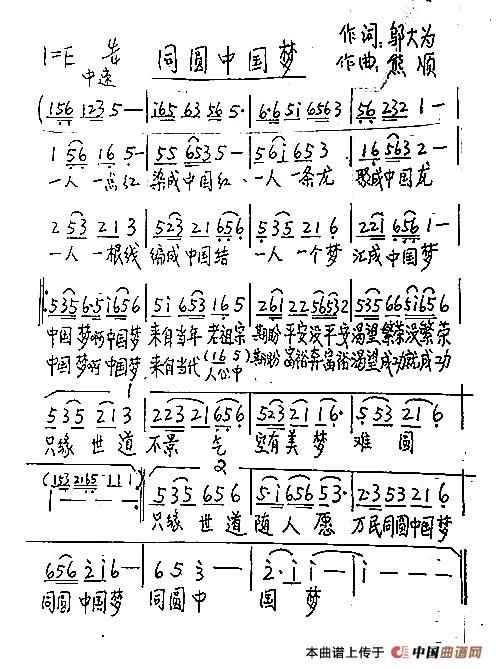 1=E
中速
同圆中国梦
作词:邬大为
作曲:熊顺
(156 123 5— | i65 63 56 5· | 6·6 5i 6563 | 56 232 1—
1 56 16 5— | 55 653 5— | 56i 653 | 16 563 2—
一人 一点红 染成中国红 一人 一条龙 聚成中国龙
2 53 21 3 | 523 21 656 | 535 21 6 | 221 656 1—
一人 一根线 编成中国结 一人 一个梦 汇成 中国梦
5356·5i656 | 5i 653 16 5 | 261 2256532 | 535 665i656
中国 梦啊 中国梦 来自当年 老祖宗 期盼平安没平安 渴望繁荣没繁荣
中国 梦啊 中国梦 来自当代 (16 5) 人心中 期盼富裕奔富裕 渴望成功就成功
1
535 21 3 | 223 21 656 | 523 21 16· | 553 21 6
只缘 世道 不景 气 空有美梦 难 圆
2
(153 2165 111)
1———
535 656 | 5·i656 53· | 23 53 21 6
只缘 世道 随人愿 万民同圆中国梦
656 2i6— | 65 3— | 2·i i— | i———
同圆 中国梦 同圆中 国 梦
本曲谱上传于 中国曲谱网